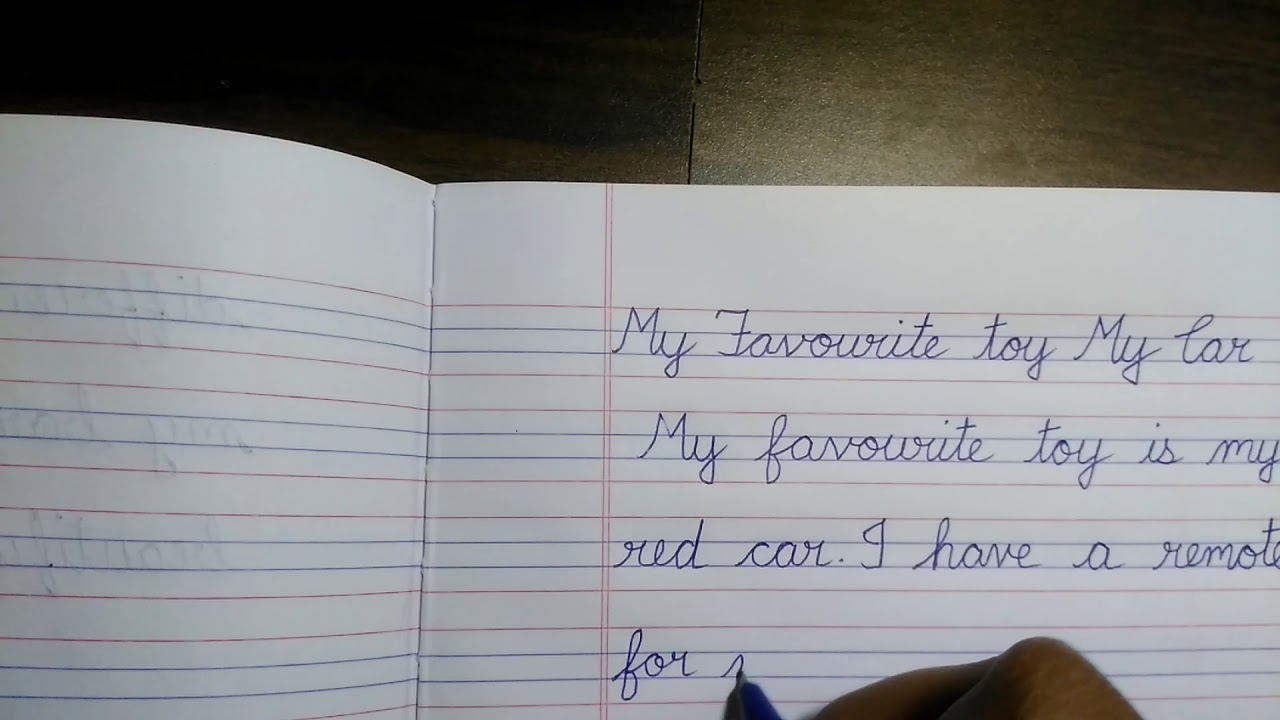 My Favourite toy My Car
My favourite toy is my
red car. I have a remote
for